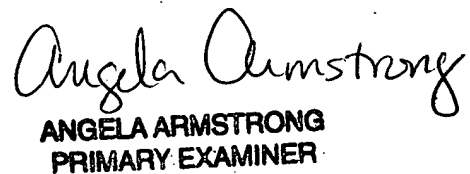 Angela Armstrong
ANGELA ARMSTRONG
PRIMARY EXAMINER